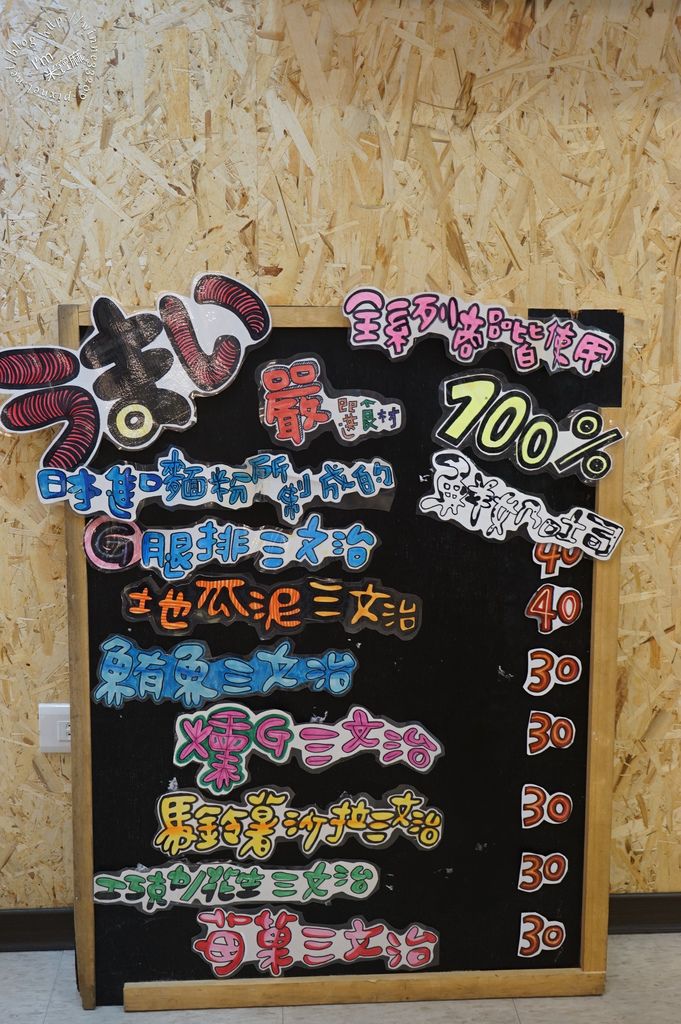 I'm 米蘿蔴
うまい
全系列商品皆使用
嚴選食材
100%
日本進口麵粉所製成的
鮮奶吐司
G腿排三文治 40
地瓜泥三文治 40
鮪魚三文治 30
燻G三文治 30
馬鈴薯沙拉三文治 30
巧克力花生三文治 30
莓菓三文治 30